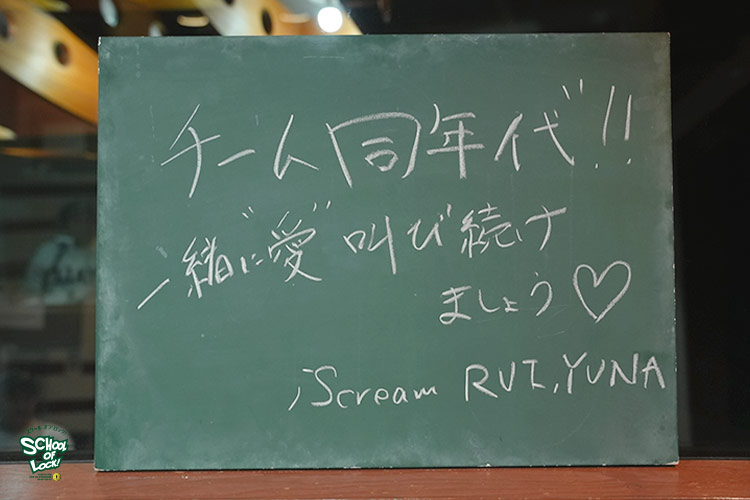 チーム同年代!!
一緒に"愛"叫び続け
ましょう♡
iScream RUI, YUNA
SCHOOL
OF
LOCK!